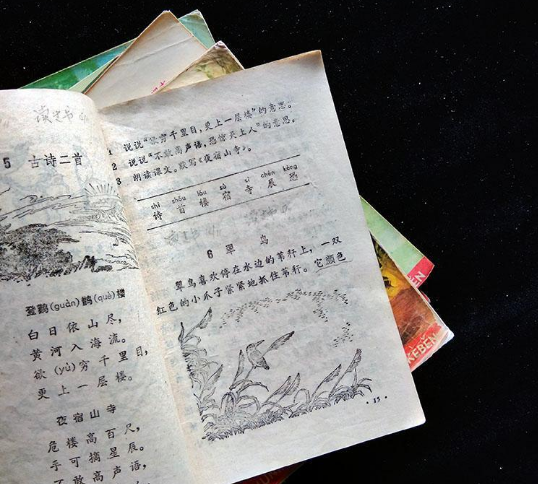 5 古诗二首
登鹳(guàn)鹊(què)楼
白日依山尽，
黄河入海流。
欲(yù)穷千里目，
更上一层楼。
夜宿山寺
危楼高百尺，
手可摘星辰。
不敢高声语，
1 说说“欲穷千里目，更上一层楼”的意思。
2 说说“不敢高声语，恐惊天上人”的意思。
3 朗读课文。默写《夜宿山寺》。
shī shǒu lóu sù sì chén kǒng
诗 首 楼 宿 寺 辰 恐
6 翠鸟
翠鸟喜欢停在水边的苇秆上，一双
红色的小爪子紧紧地抓住苇秆。它颜色
·15·
KEBEN